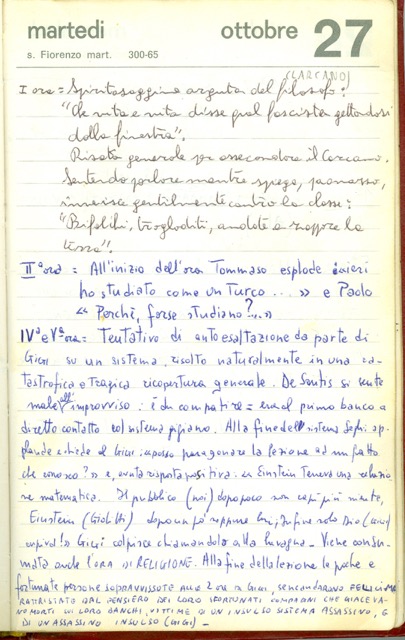 martedi ottobre 27
s. Fiorenzo mart. 300-65
(CARCANO)
I ora = Spiritosaggine arguta del filosofo:
"Che vita e vita disse quel fascista gettandosi
dalla finestra".
Risata generale per assecondare il Carcano.
Sentendo parlare mentre spiega, paonazzo,
inveisce gentilmente contro la classe:
"Bifolchi, trogloditi, andate a zappare la
terra".
IIª ora = All'inizio dell'ora Tommaso esplode "ieri
ho studiato come un Turco...." e Paolo
"Perchè, forse studiano?..."
IVª e Vª ora = Tentativo di autoesaltazione da parte di
Gigi su un sistema, risolto naturalmente in una ca-
tastrofica e tragica ricopertura generale. De Santis si sente
male all'improvviso: è da compatire = era al primo banco a
diretto contatto col sistema gigiano. Alla fine del sistema
plaude e chiede al Gigi imposso paragonare la lezione ad un fatto
che conosco?" e, avuta risposta positiva: "Einstein teneva una relazio-
ne matematica. Il pubblico (noi) dopo poco non capì più niente,
Einstein (Gigi) dopo un po' neppure lui; infine solo Dio
capiva!" Gigi colpisce chiamandolo alla lavagna. Viene consu-
mata anche l'ORA DI RELIGIONE. Alla fine della lezione le poche e
fortunate persone SOPRAVVISSUTE ALLE 2 ORE DI GIGI,
RATTRISTATE DAL PENSIERO DEI LORO SFORTUNATI COMPAGNI CHE GIACEVA-
NO MORTI SUI LORO BANCHI, VITTIME DI UN INSULSO SISTEMA ASSASSINO, E
DI UN ASSASSINO INSULSO (GIGI) -